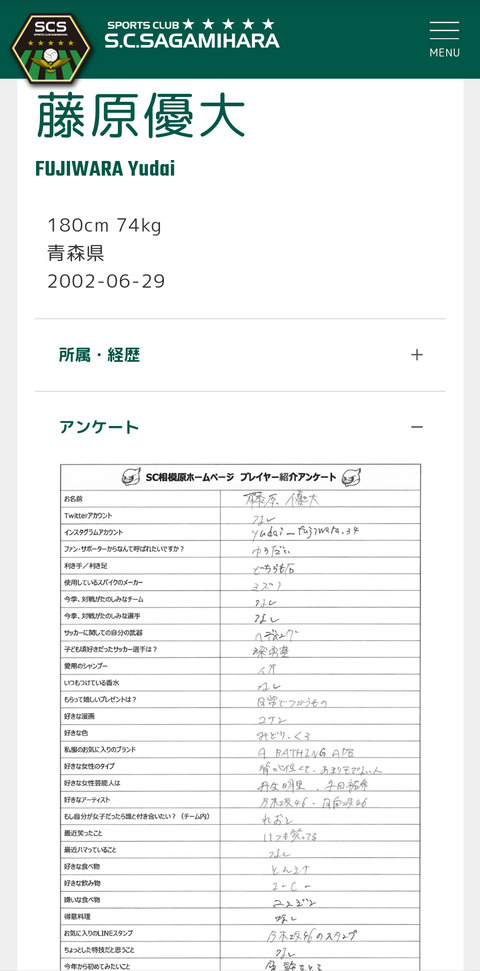 SCS
SPORTS CLUB ★★★★★
S.C.SAGAMIHARA
MENU
藤原優大
FUJIWARA Yudai
180cm 74kg
青森県
2002-06-29
所属・経歴 +
アンケート −
SC相模原ホームページ プレイヤー紹介アンケート
お名前 藤原 優大
Twitterアカウント なし
インスタグラムアカウント yudai_fujiwara.34
ファン・サポーターからなんて呼ばれたいですか? ゆうだい
利き手/利き足 どちらも右
使用しているスパイクのメーカー ミズノ
今季、対戦がたのしみなチーム なし
今季、対戦がたのしみな選手 なし
サッカーに関しての自分の武器 ヘディング
子ども頃好きだったサッカー選手は?
愛用のシャンプー
いつもつけている香水 なし
もらって嬉しいプレゼントは? 日常でつかうもの
好きな漫画 コナン
好きな色 みどり、くろ
私服のお気に入りのブランド A BATHING APE
好きな女性のタイプ 背が低くて、あまり
好きな女性芸能人は 丹生明里、与田祐希
好きなアーティスト 乃木坂46、日向坂46
もし自分が女子だったら誰と付き合いたい?(チーム内) れおと
最近笑ったこと いつも笑ってる
最近ハマっていること なし
好きな食べ物 とんかつ
好きな飲み物 コーヒー
嫌いな食べ物
得意料理 なし
お気に入りのLINEスタンプ 乃木坂46のスタンプ
ちょっとした特技だと思うこと なし
今年から初めてみたいこと